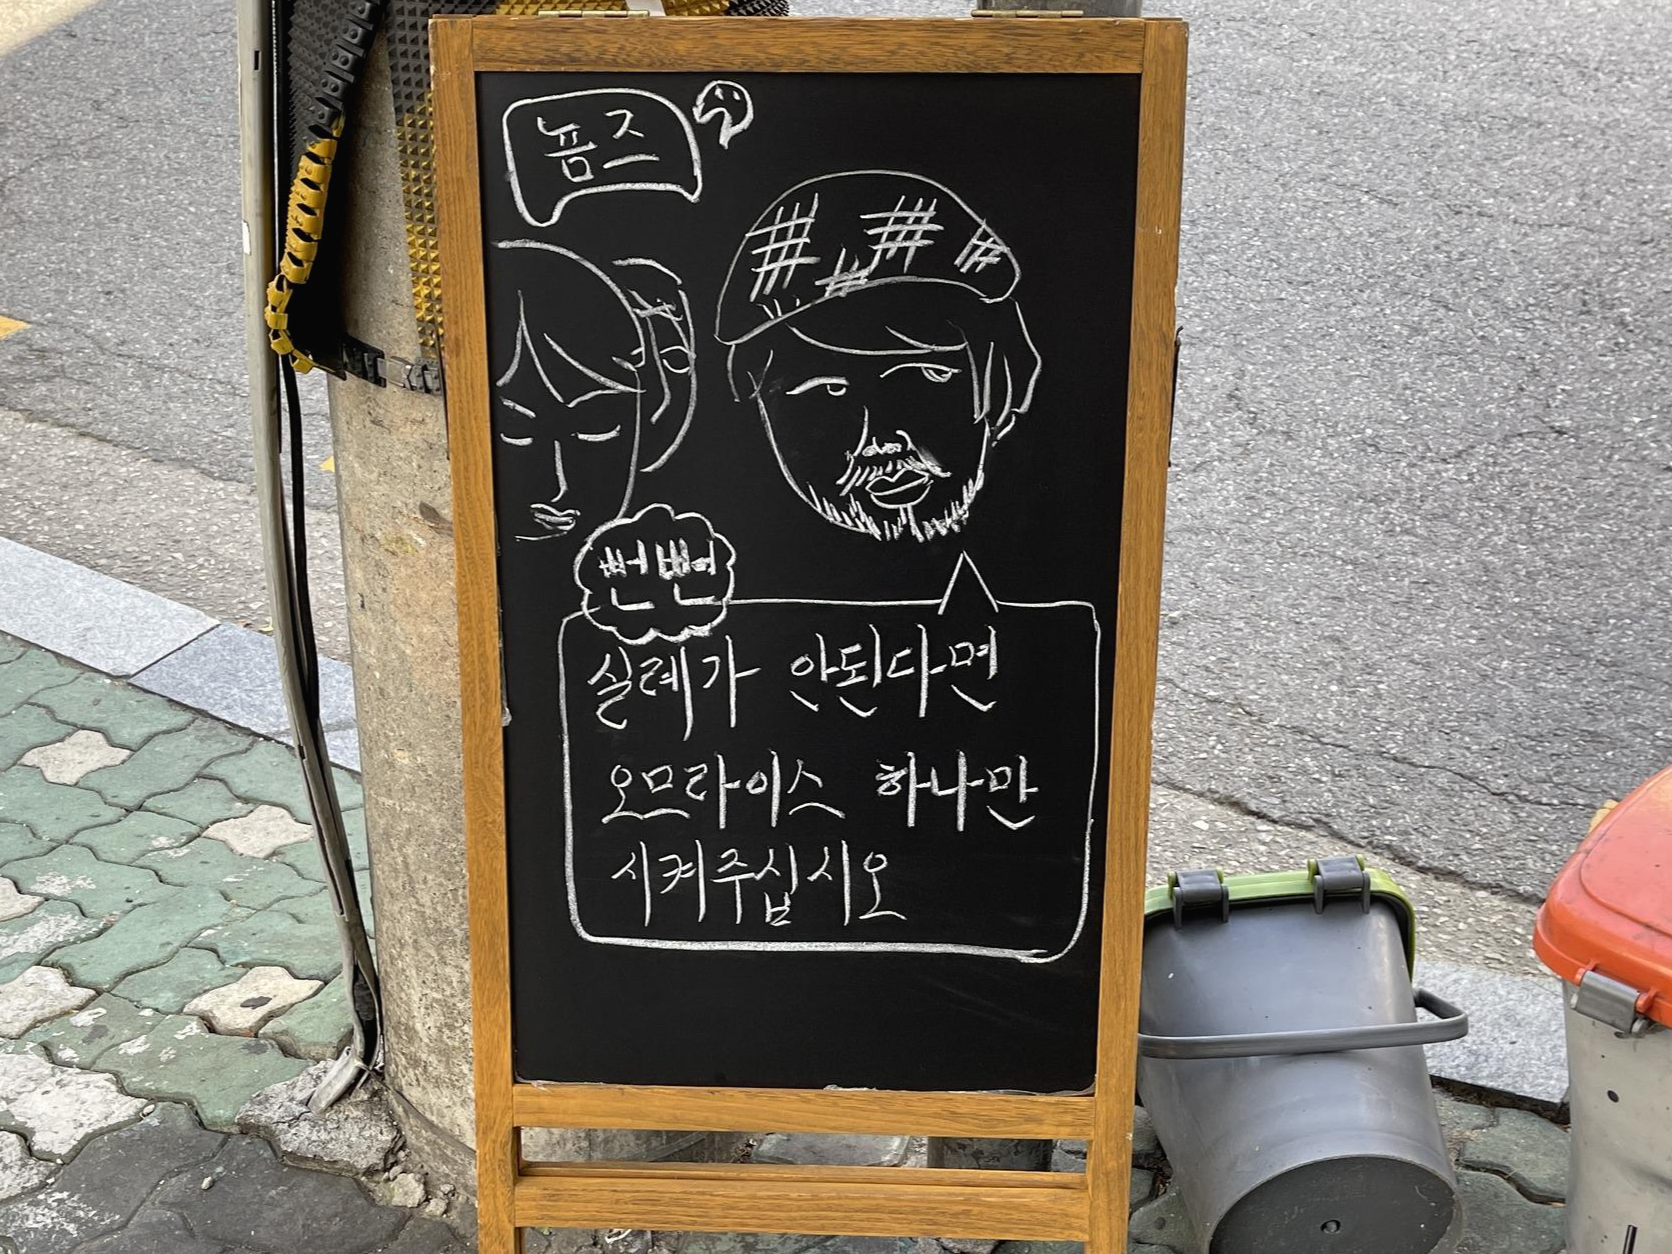 놈즈
뻔뻔
실례가 안된다면
오므라이스 하나만
시켜주십시오